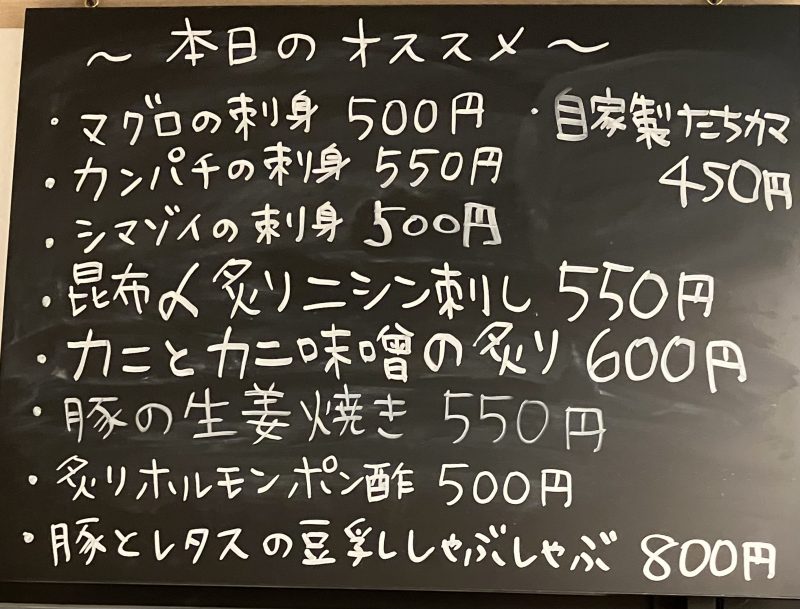 ～本日のオススメ～
・マグロの刺身 500円
・カンパチの刺身 550円
・シマゾイの刺身 500円
・昆布〆炙りニシン刺し 550円
・カニとカニ味噌の炙り 600円
・豚の生姜焼き 550円
・炙りホルモンポン酢 500円
・豚とレタスの豆乳しゃぶしゃぶ 800円
・自家製たちカマ
450円